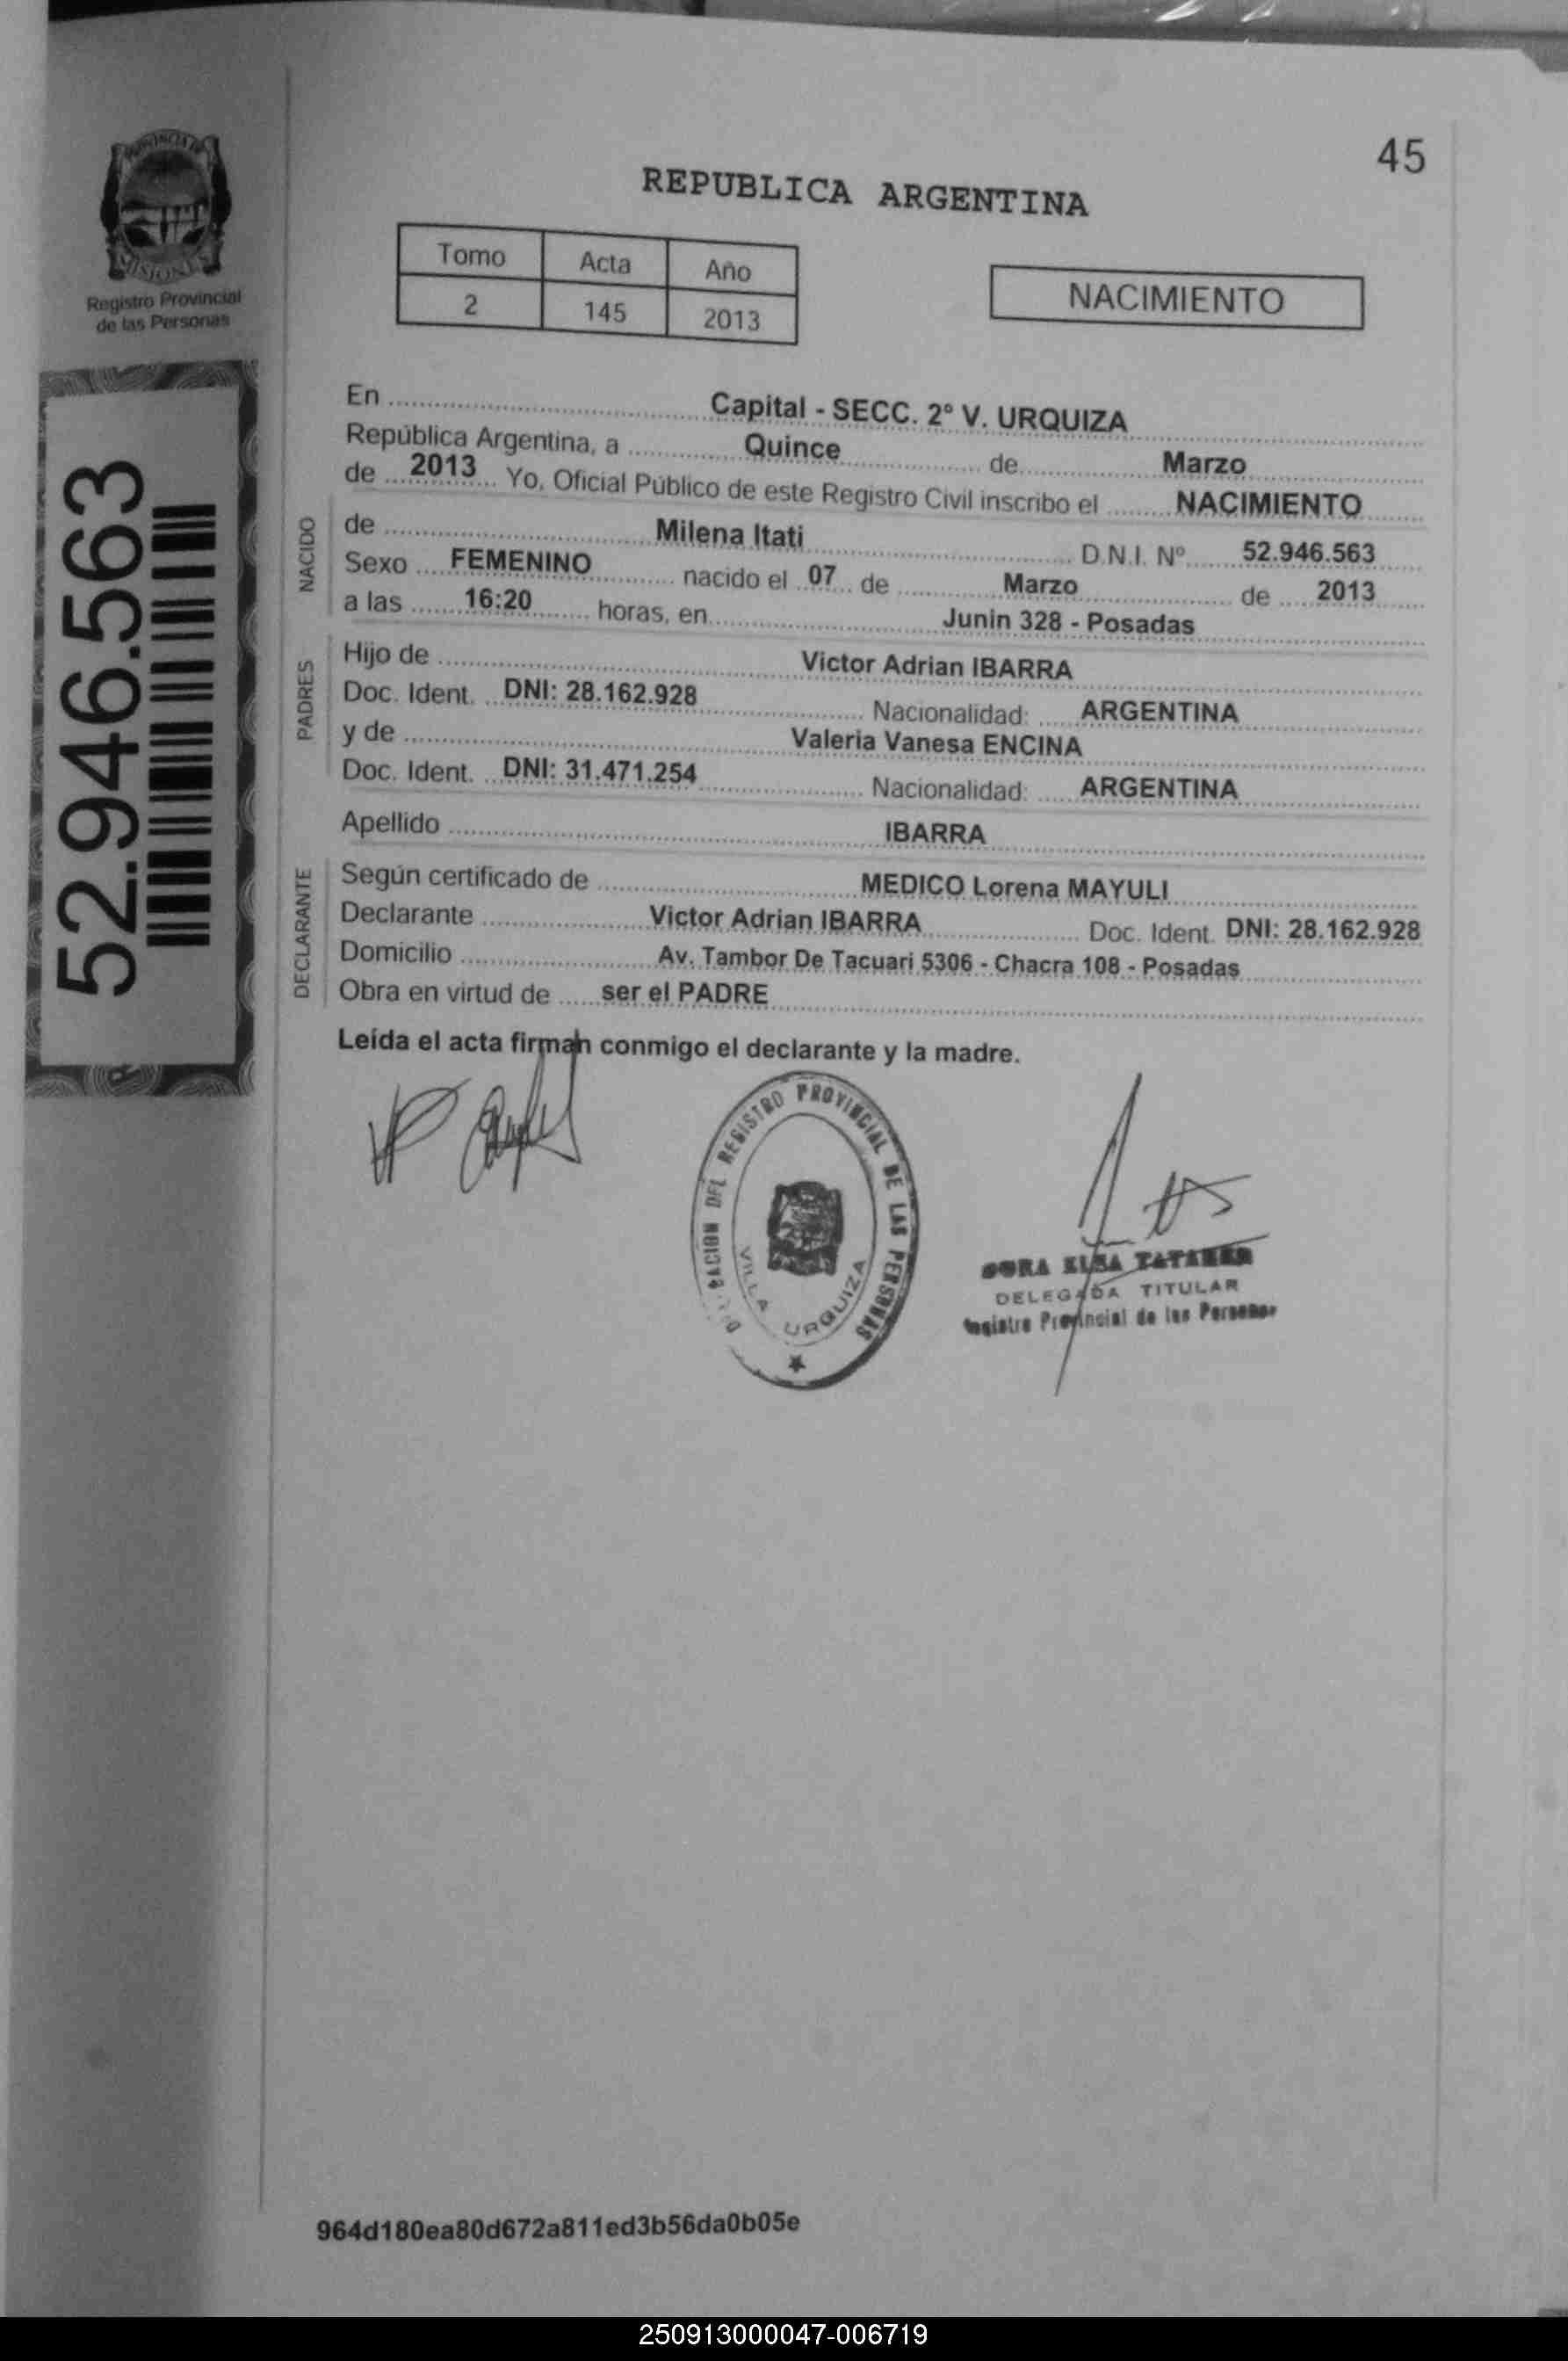 45
PROVINCIA DE
MISIONES
Registro Provincial
de las Personas
52.946.563
REPUBLICA ARGENTINA
Tomo Acta Año
2 145 2013
NACIMIENTO
En Capital - SECC. 2° V. URQUIZA
República Argentina, a Quince de Marzo
de 2013 Yo, Oficial Público de este Registro Civil inscribo el NACIMIENTO
NACIDO
de Milena Itati D.N.I. Nº 52.946.563
Sexo FEMENINO nacido el 07 de Marzo de 2013
a las 16:20 horas, en Junin 328 - Posadas
PADRES
Hijo de Victor Adrian IBARRA
Doc. Ident. DNI: 28.162.928 Nacionalidad: ARGENTINA
y de Valeria Vanesa ENCINA
Doc. Ident. DNI: 31.471.254 Nacionalidad: ARGENTINA
Apellido IBARRA
DECLARANTE
Según certificado de MEDICO Lorena MAYULI
Declarante Victor Adrian IBARRA Doc. Ident. DNI: 28.162.928
Domicilio Av. Tambor De Tacuari 5306 - Chacra 108 - Posadas
Obra en virtud de ser el PADRE
Leída el acta firman conmigo el declarante y la madre.
DEL REGISTRO PROVINCIAL DE LAS PERSONAS
VILLA URQUIZA
ELSA
DELEGADA TITULAR
Provincial de las Personas
964d180ea80d672a811ed3b56da0b05e
250913000047-006719